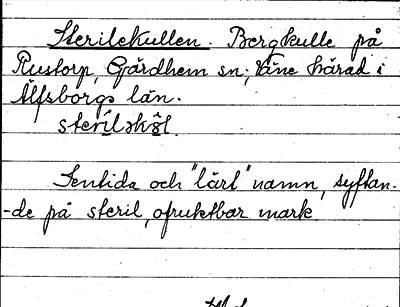 Sterilekullen. Bergkulle på
Rustorp, Gärdhem sn; Väne härad i
Älfsborgs län.
Sentida och "lärt" namn, syftan-
-de på steril, ofruktbar mark